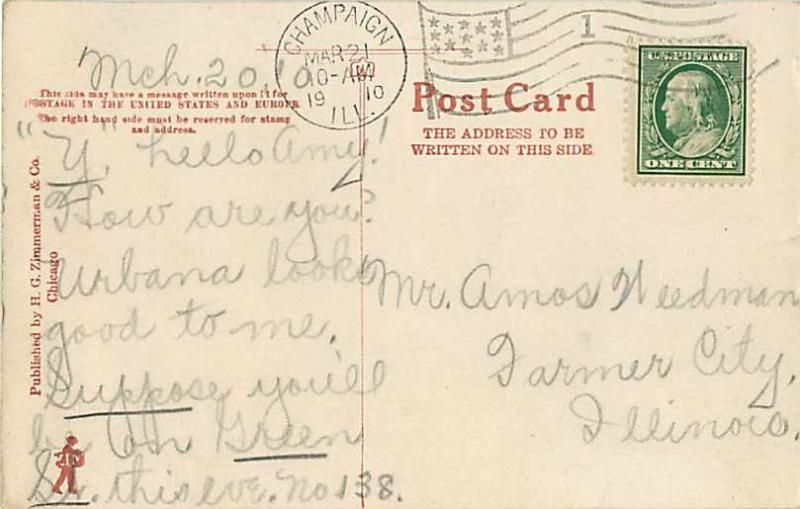 Mch. 20, 10
CHAMPAIGN
MAR 21
10-AM
19 10
ILL.
1
This side may have a message written upon it for
POSTAGE IN THE UNITED STATES AND EUROPE
The right hand side must be reserved for stamp
and address.
Post Card
THE ADDRESS TO BE
WRITTEN ON THIS SIDE.
U.S. POSTAGE
ONE CENT
Published by H. G. Zimmerman & Co.
Chicago
"Y," hello Amy!
How are you?
Urbana looks
good to me.
Suppose you'll
be on Green
St. this eve. No 138.
Mr. Amos Weedman
Farmer City,
Illinois.